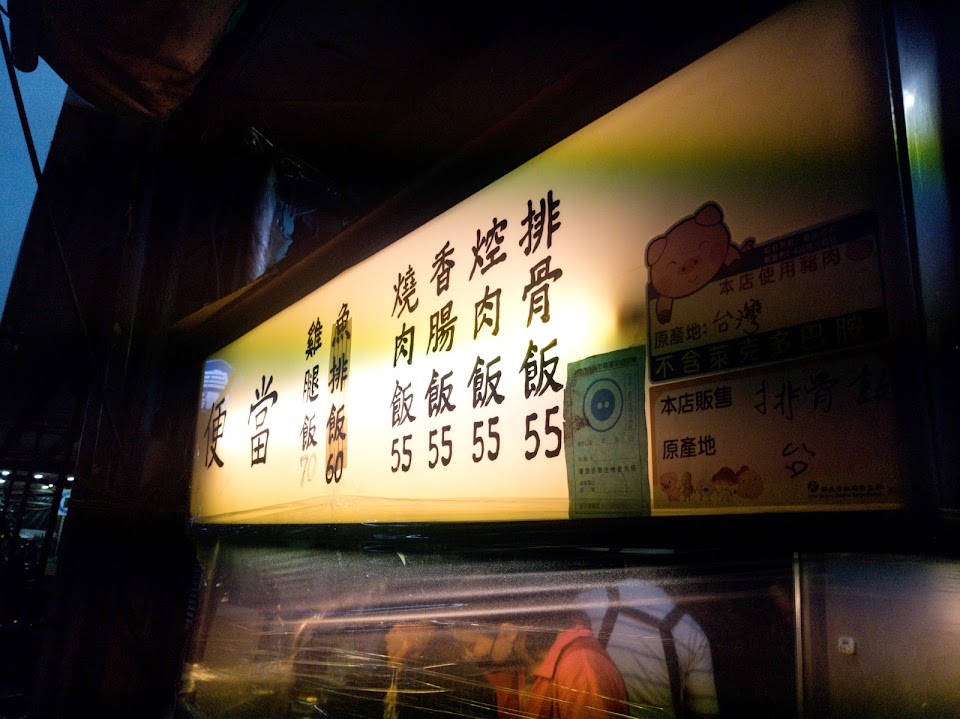 排骨飯55
焢肉飯55
香腸飯55
燒肉飯55
魚排飯60
雞腿飯70
便當
本店使用豬肉
原產地:台灣
不含萊克多巴胺
本店販售 排骨飯
原產地 台